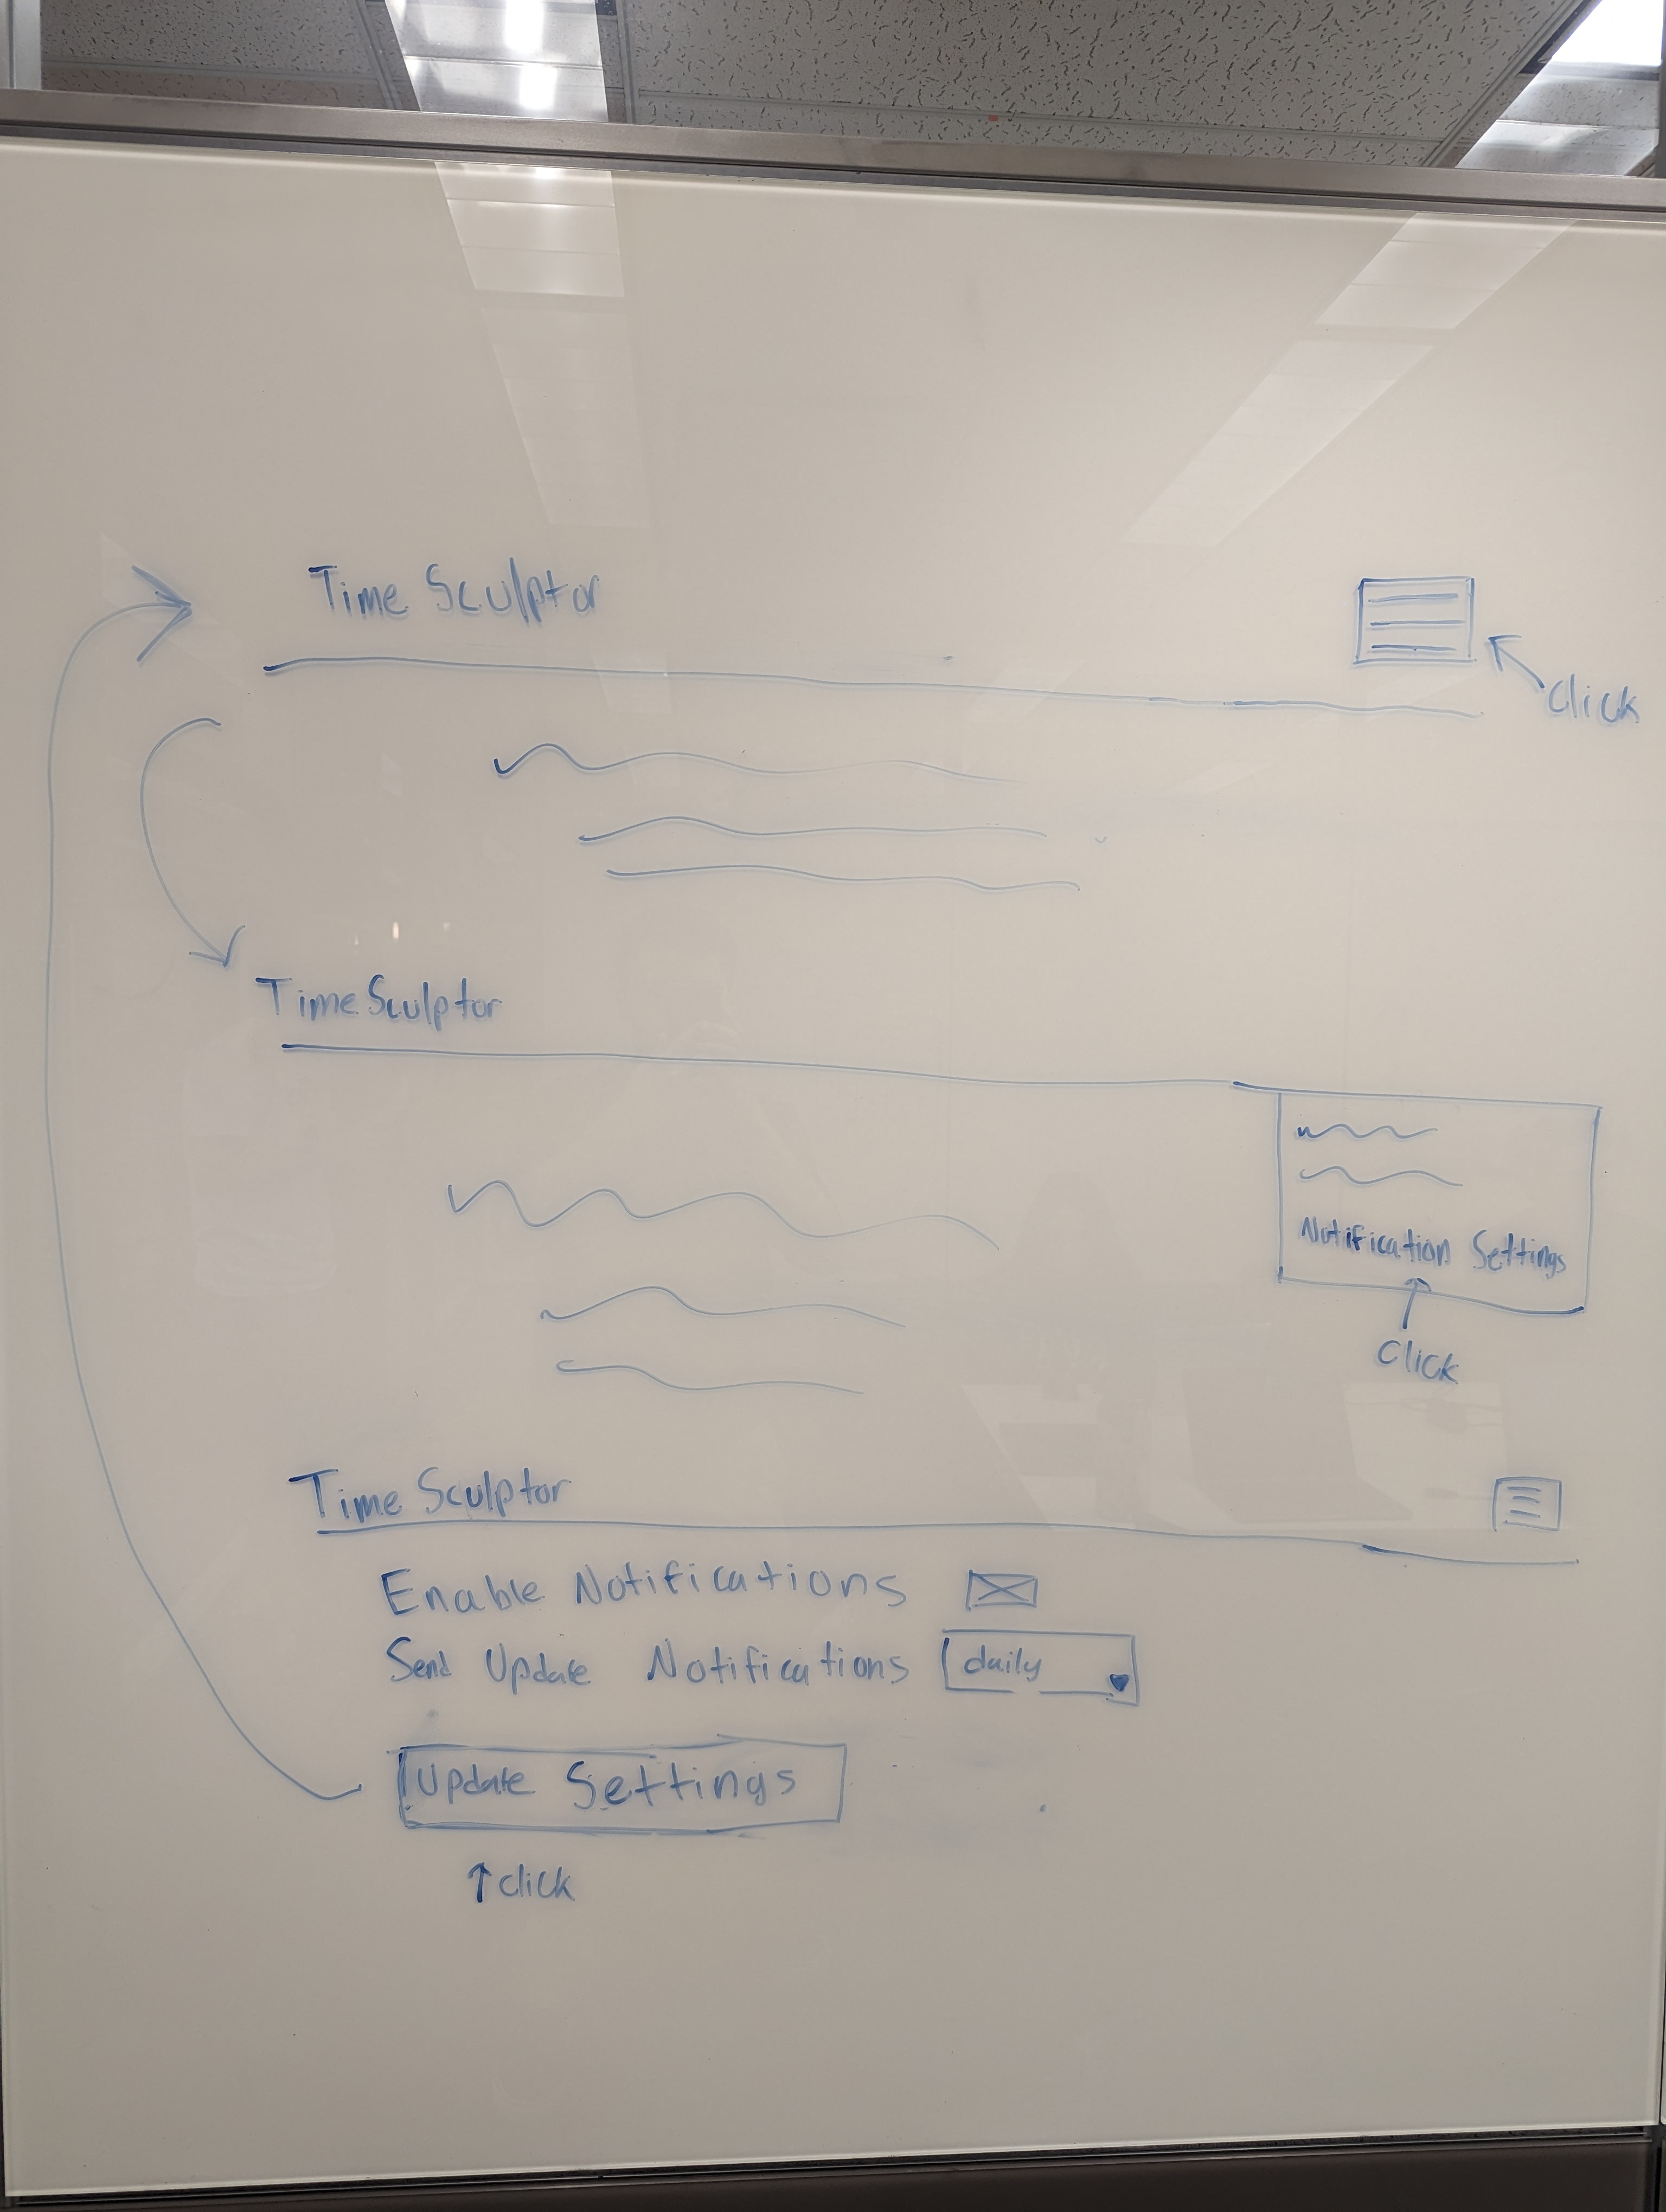 Time Sculptor
Click
Time Sculptor
Notification Settings
Click
Time Sculptor
Enable Notifications
Send Update Notifications daily
Update Settings
click